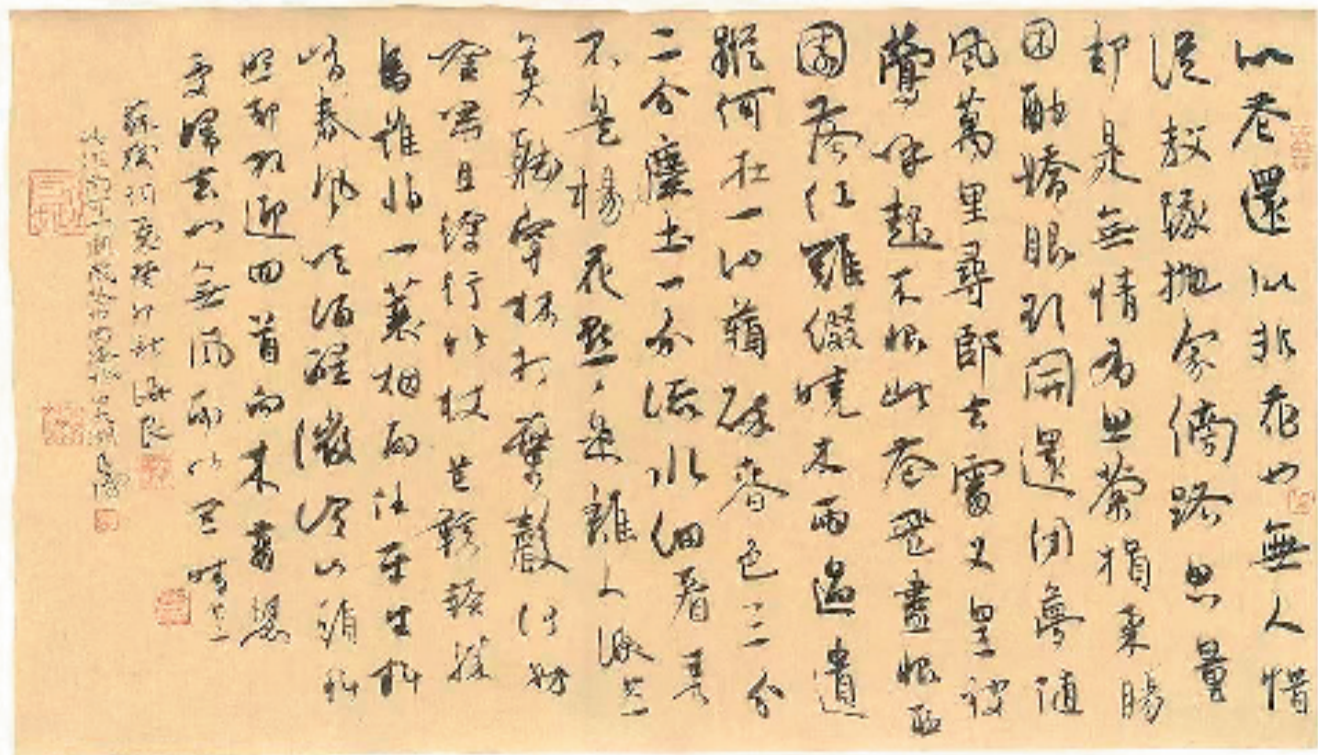 似花還似非花也無人惜
從教墜抛家傍路思量
却是無情有思縈損柔腸
困酣嬌眼欲開還閉夢隨
風萬里尋郎去處又還被
鶯呼起不恨此花飛盡恨西
園落紅難綴曉來雨過遺
蹤何在一池萍碎春色三分
二分塵土一分流水細看來
不是楊花點點是離人淚
莫聽穿林打葉聲何妨
吟嘯且徐行竹杖芒鞋輕勝
馬誰怕一蓑烟雨任平生料
峭春風吹酒醒微冷山頭斜
照却相迎回首向來蕭瑟
處歸去也無風雨也無晴
蘇軾詞癸卯秋海良